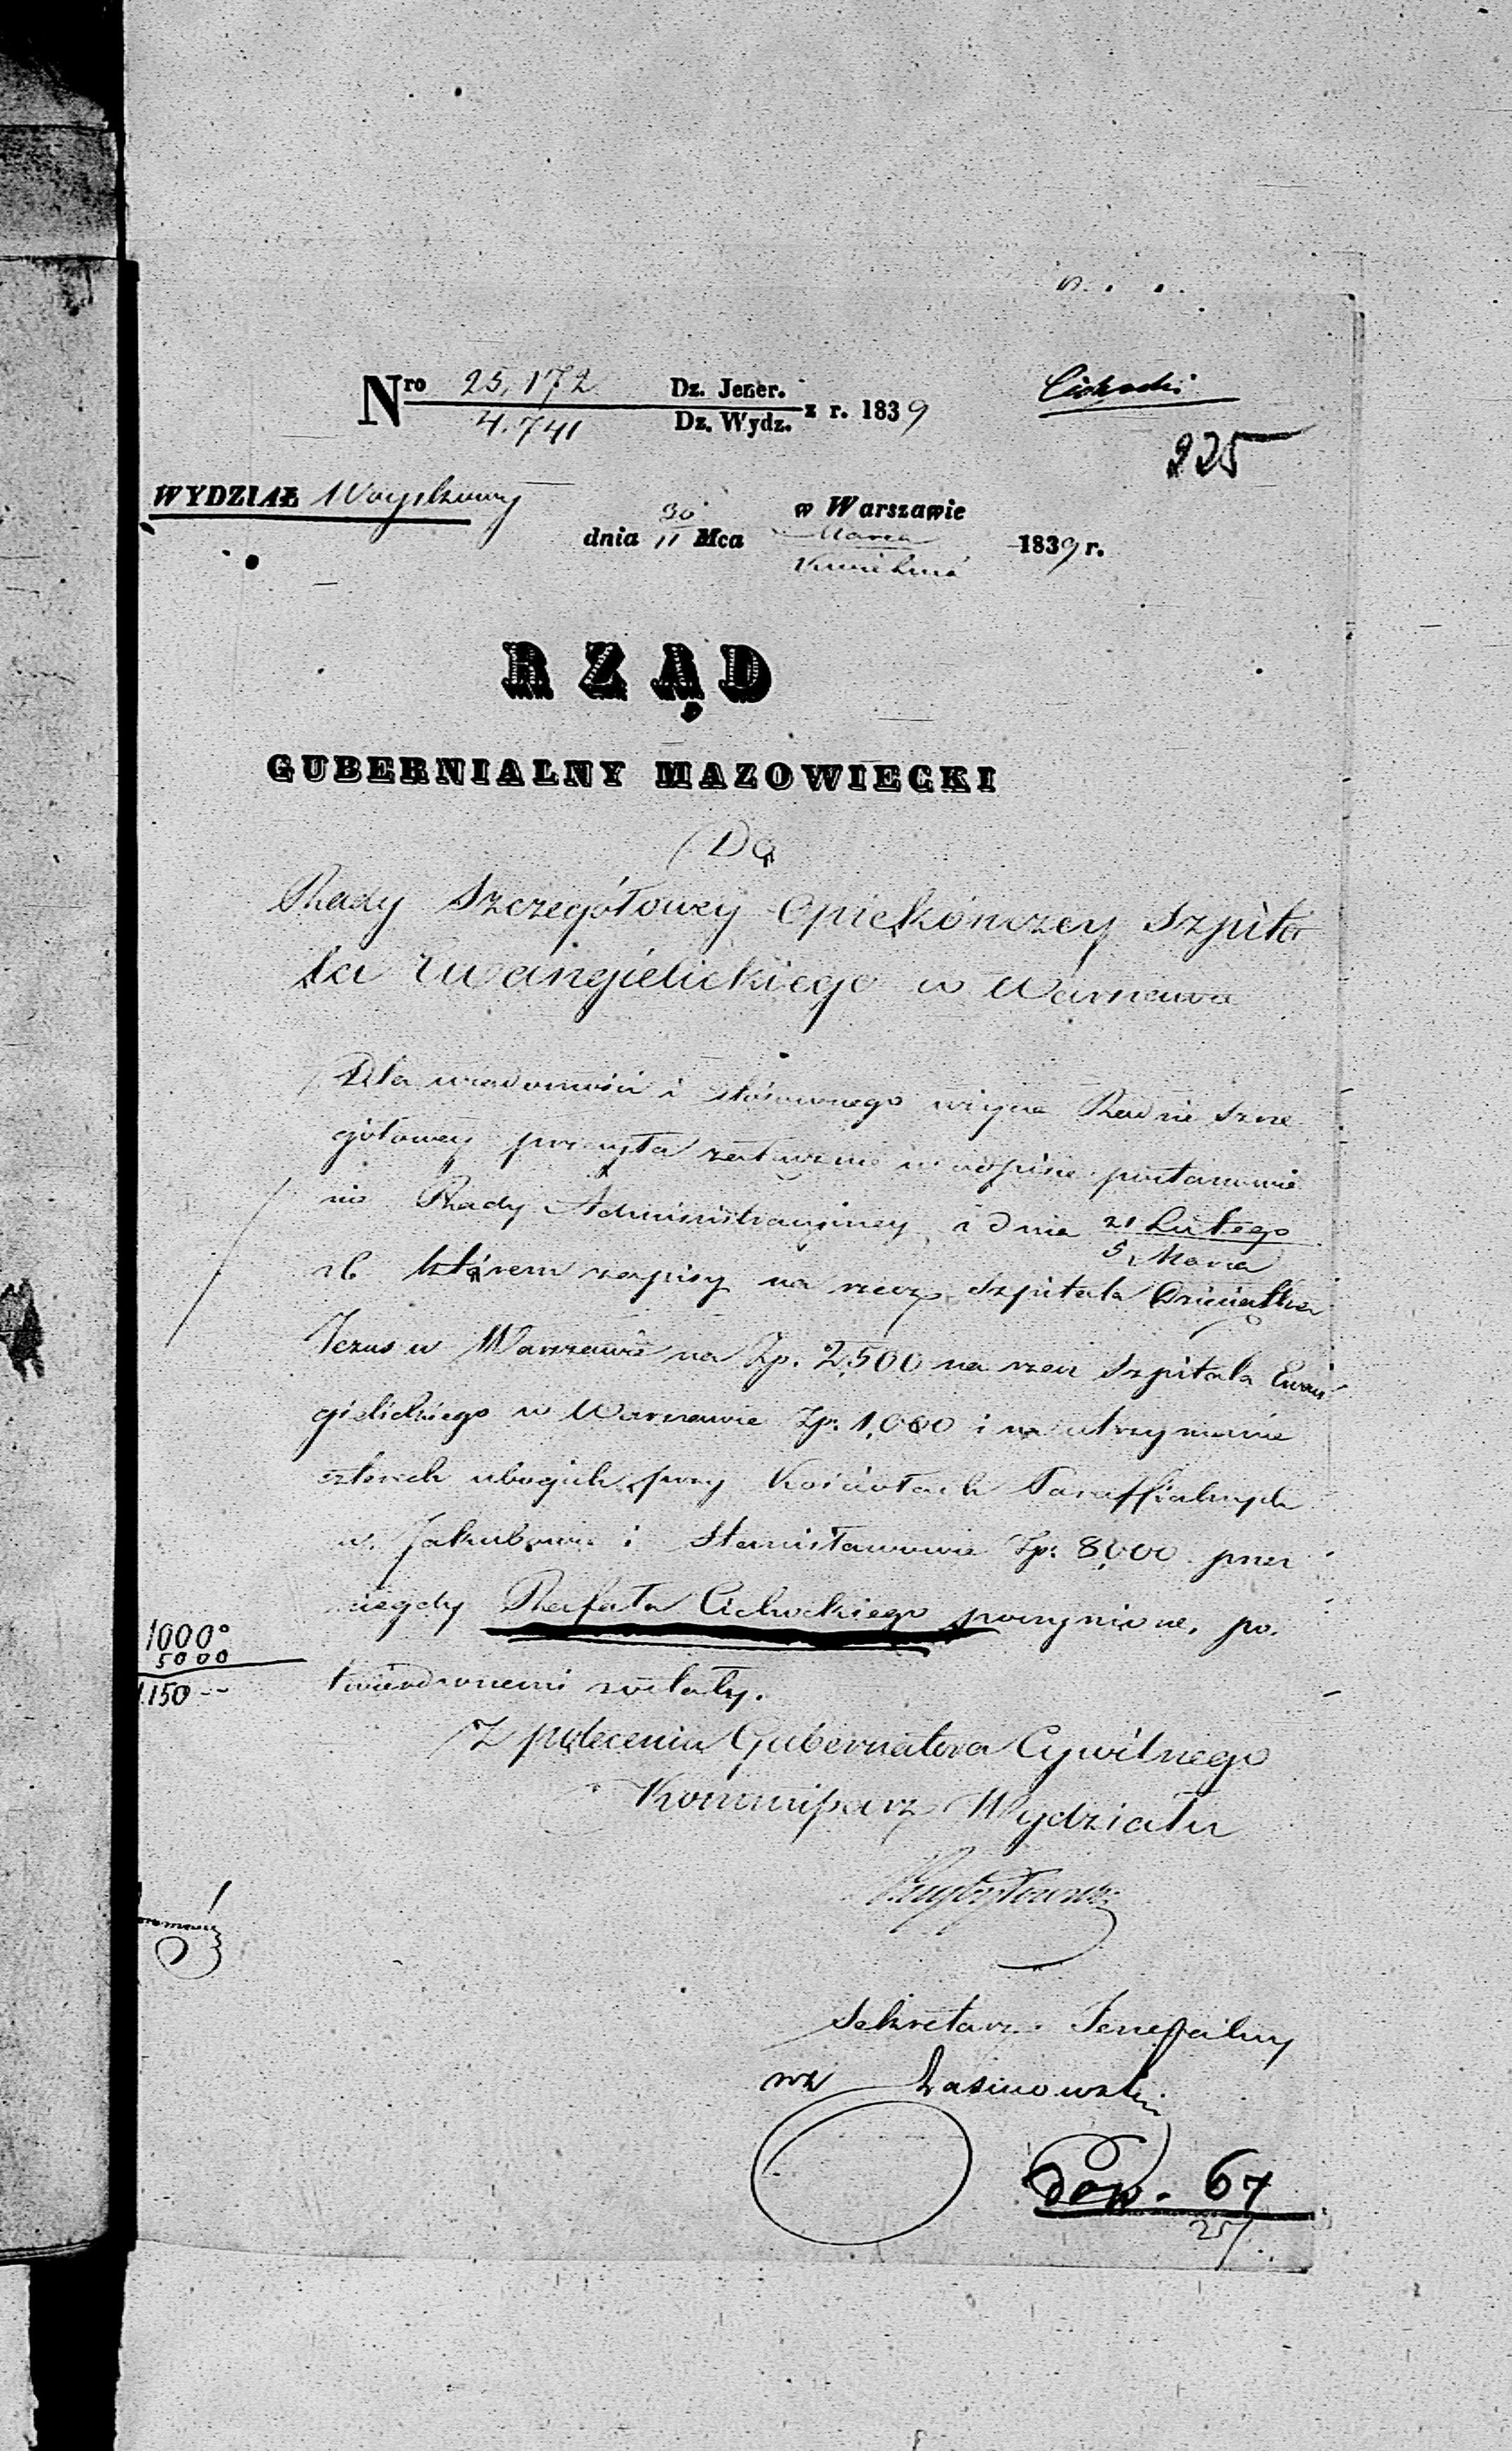 Cichocki
Nro 25,172 Dz. Jener. z r. 1839
4.741 Dz. Wydz.
225
WYDZIAŁ Woyskowy
w Warszawie
dnia 30/11 Mca Marca/Kwietnia 1839 r.
RZĄD
GUBERNIALNY MAZOWIECKI
Do
Rady Szczegółowey Opiekónczey Szpita
la Ewangielickiego w Warszawie
Dla wiadomości i stósownego użycia Radzie Szcze
gółowey przesyła w odpisie postanowie
nie Rady Administracyiney z dnia 21 Lutego
5 Marca
rb którem zapisy na rzecz Szpitala Dzieciątka
Jezus w Warszawie na Zp. 2,500 na rzecz Szpitala Ewan
gielickiego w Warszawie Zp. 1,000 i na utrzymanie
czterech ubogich przy Kościołach Paraffialnych
w Jakubowie i Stanisławowie Zp. 8,000 przez
niegdy Rafała Cichockiego poczynione, po
1000°
5000
1150 --
twierdzonemi zostały.
Z polecenia Gubernatora Cywilnego
Kommissarz Wydziału
Sekretarz Jeneralny
wz Łasinowski
Dow. 67
257